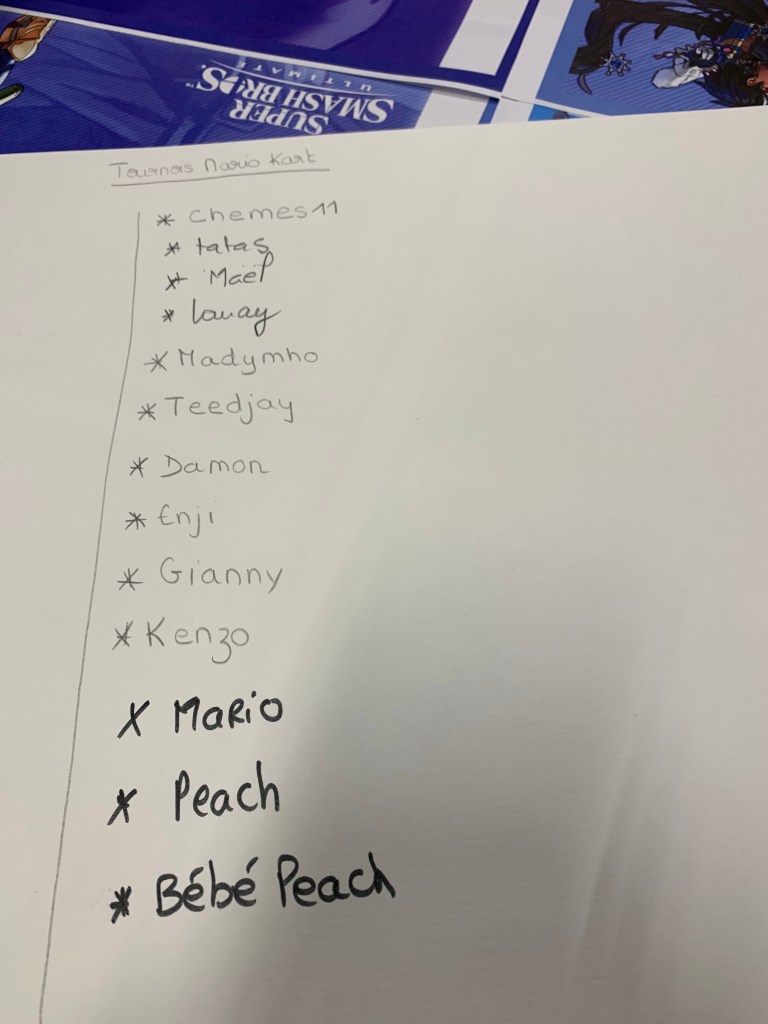 SUPER
SMASH BROS.™
ULTIMATE
Tournois Mario Kart
* Chemes11
* tatas
* Maël
* Louay
* Madymho
* Teedjay
* Damon
* Enji
* Gianny
* Kenzo
X MaRio
* Peach
* Bébé Peach